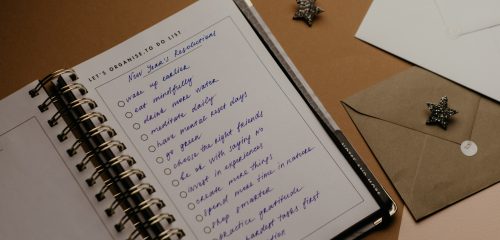 LET'S ORGANISE. TO DO LIST
New Year's Resolutions
wake up earlier
eat mindfully
drink more water
meditate daily
have mental reset days
go green
choose the right friends
be ok with saying no
invest in experiences
create more things
spend more time in nature
shop smarter
practice gratitude
hardest tasks first